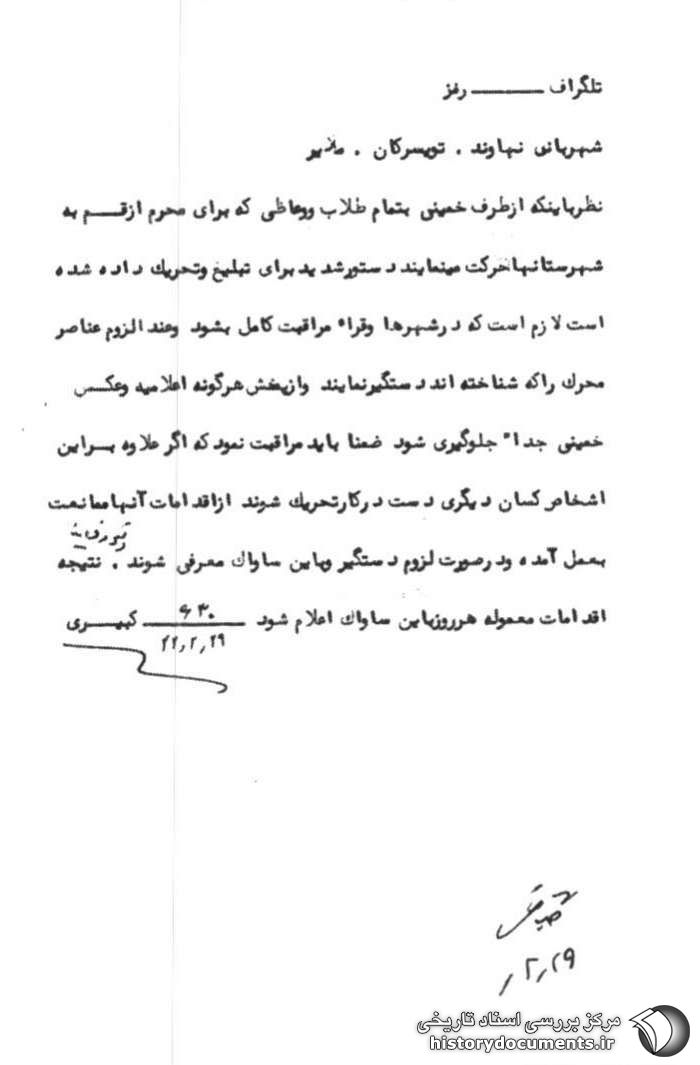 تلگراف ــــــــ رمز
شهربانی نهاوند . تویسرکان . ملایر
نظرباینکه ازطرف خمینی بتمام طلاب ووعاظی که برای محرم ازقـــم به
شهرستانهاحرکت مینمایند دستورشدید برای تبلیغ وتحریك داده شده
است لازم است که درشهرها وقراء مراقبت کامل بشود وعند الزوم عناصر
محرك راکه شناخته اند دستگیرنمایند وازپخش هرگونه اعلامیه وعکـــس
خمینی جداً جلوگیری شود ضمنا باید مراقبت نمود که اگر علاوه بــراین
اشخاص کسان دیگری دست درکارتحریك شوند ازاقدامات آنهاممانعت
بعمل آمده ودرصورت لزوم دستگیر وباین ساواك معرفی شوند . نتیجه
اقدامات معموله هرروزباین ساواك اعلام شود ــــــــ کبیـــری
۶۳۰
۴۲٫۲٫۲۹
۲٫۲۹٫
مرکز بررسی اسناد تاریخی
historydocuments.ir